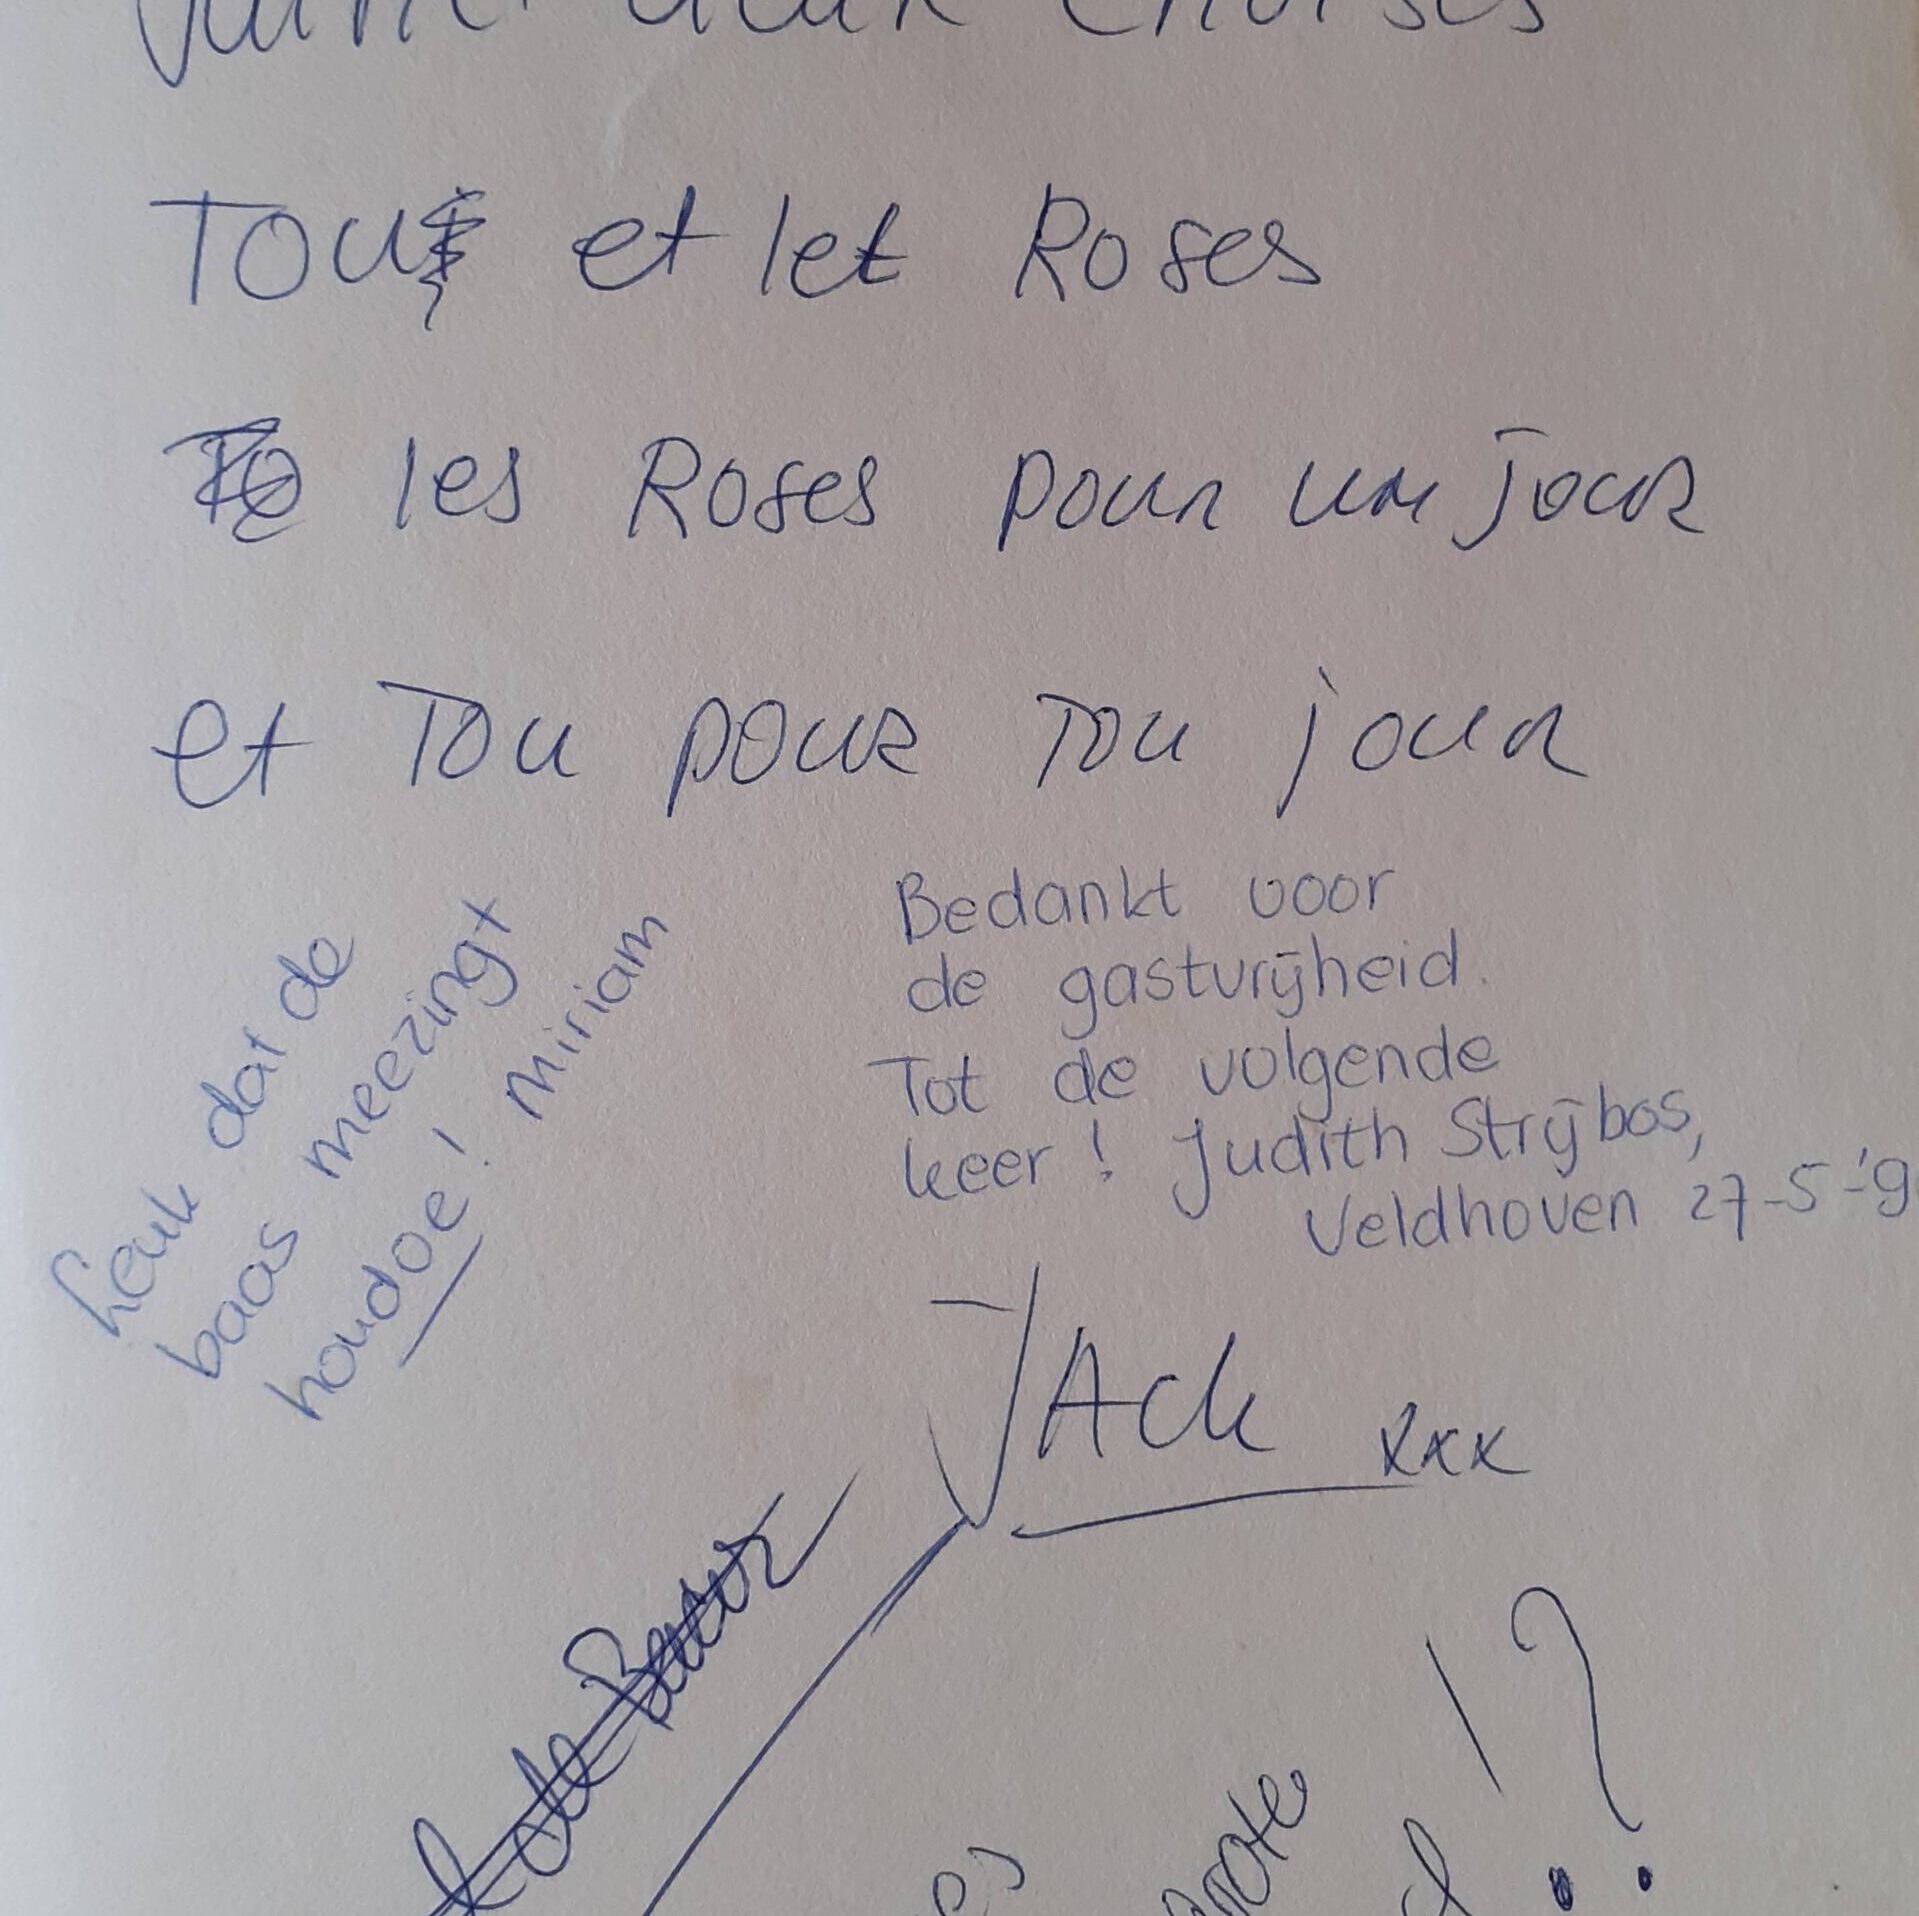 deux choises
Tou et let Roses
les Roses pour un jour
et Tou pour Tou jour
Leuk dat de
baas meezingt
houdoe! Miriam
Bedankt voor
de gastvrijheid.
Tot de volgende
keer! Judith Strijbos,
Veldhoven 27-5-'9
JAck xxx
!?